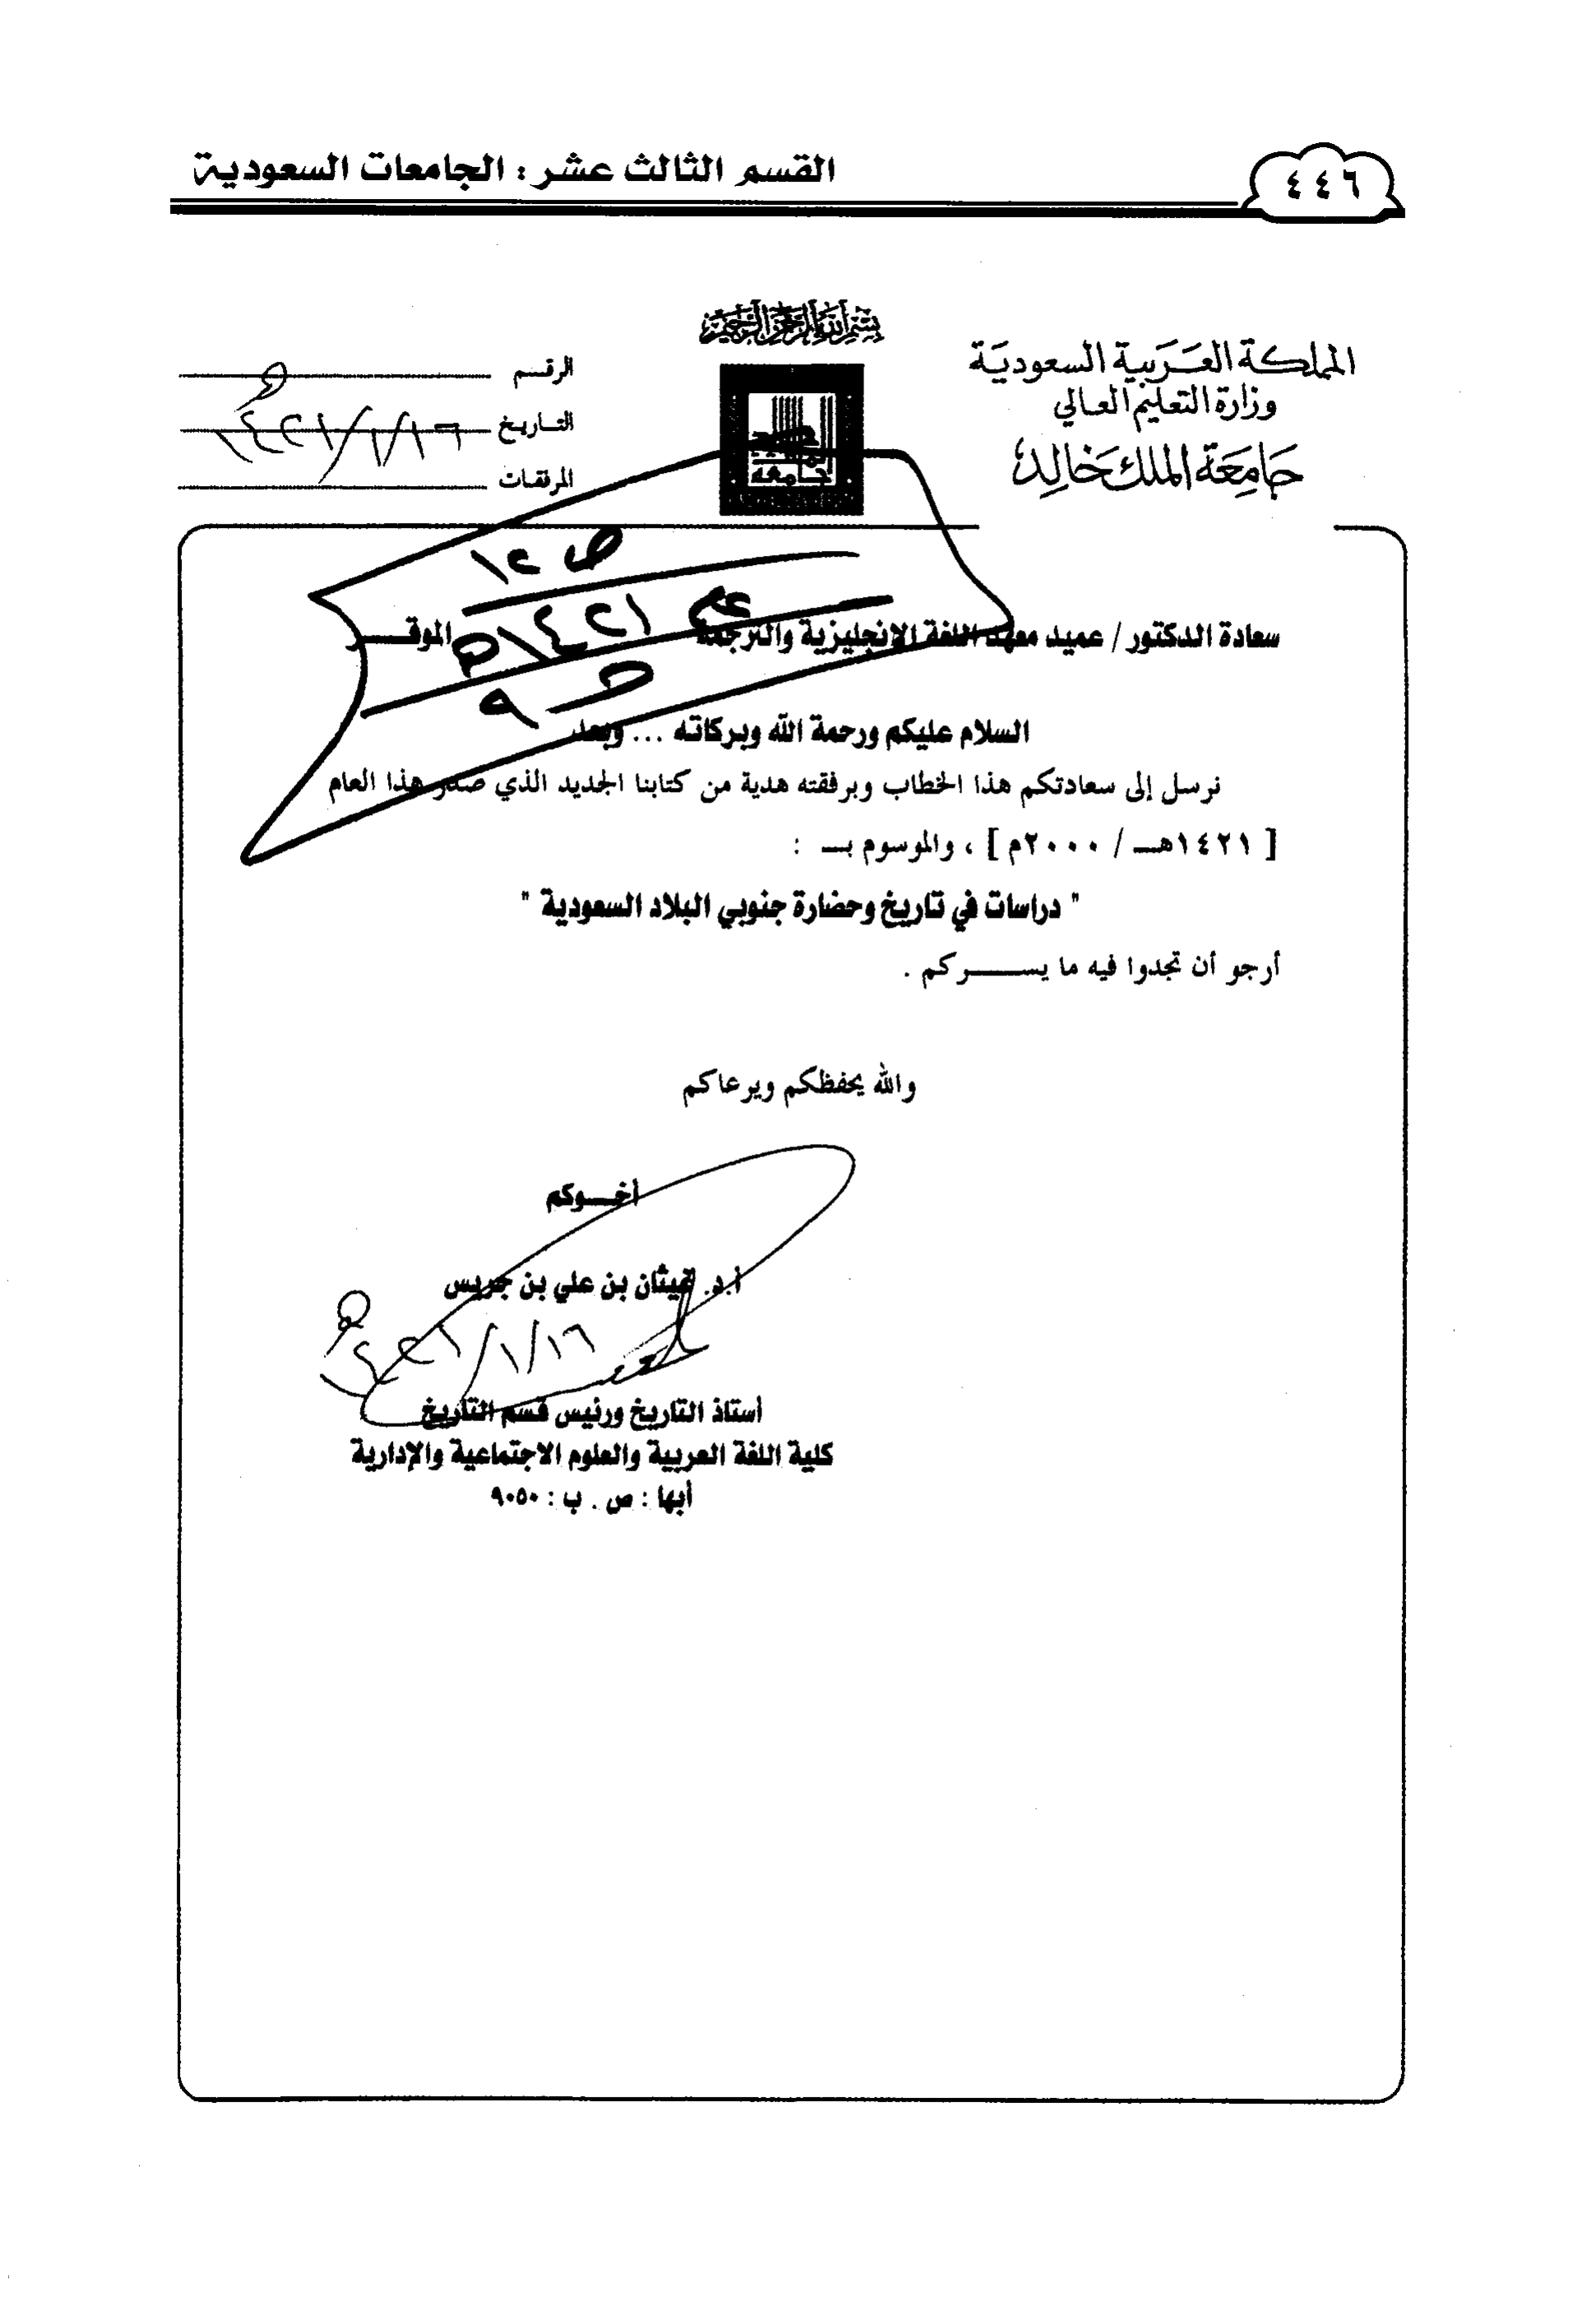 ٤٤٦
القسم الثالث عشر : الجامعات السعودية
بسم الله الرحمن الرحيم
المملكة العربية السعودية
وزارة التعليم العالي
جامعة الملك خالد
الرقم
التاريخ ١٤٢١/١/١٦هـ
المرفقات
ص ١٢
عام ١٤٢١هـ
سعادة الدكتور / عميد معهد اللغة الإنجليزية والترجمة الموقــر
السلام عليكم ورحمة الله وبركاته ... وبعد
نرسل إلى سعادتكم هذا الخطاب وبرفقته هدية من كتابنا الجديد الذي صدر هذا العام
[ ١٤٢١هـــ / ٢٠٠٠م ] ، والموسوم بــ :
" دراسات في تاريخ وحضارة جنوبي البلاد السعودية "
أرجو أن تجدوا فيه ما يســــركم .
والله يحفظكم ويرعاكم
أخــوكم
أ.د. غيثان بن علي بن جريس
١٤٢١/١/١٦هـ
أستاذ التاريخ ورئيس قسم التاريخ
كلية اللغة العربية والعلوم الاجتماعية والإدارية
أبها : ص . ب : ٩٠٥٠